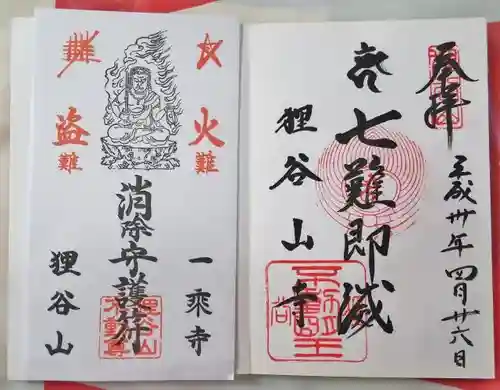 奉拝
平成卅年四月廿六日
七難即滅
狸谷山寺
火難
盗難
消除守護符
一乘寺
狸谷山